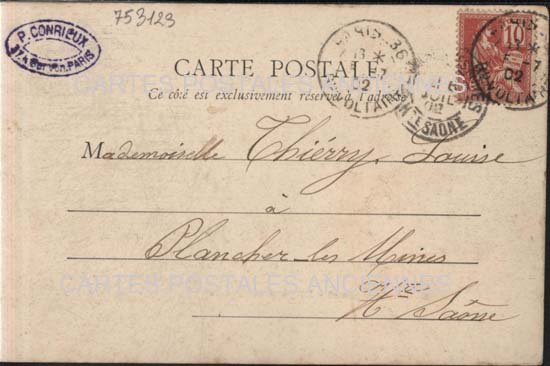 753123
P. CONRIEUX
PARIS
PARIS
02
10
02
CARTE POSTALE
Ce côté est exclusivement réservé à l'adresse
SAÔNE
Mademoiselle Thiérry Louise
à
Plancher les Mines
Hte Saône
CARTES POSTALES ANCIENNES
CARTES POSTALES ANCIENNES